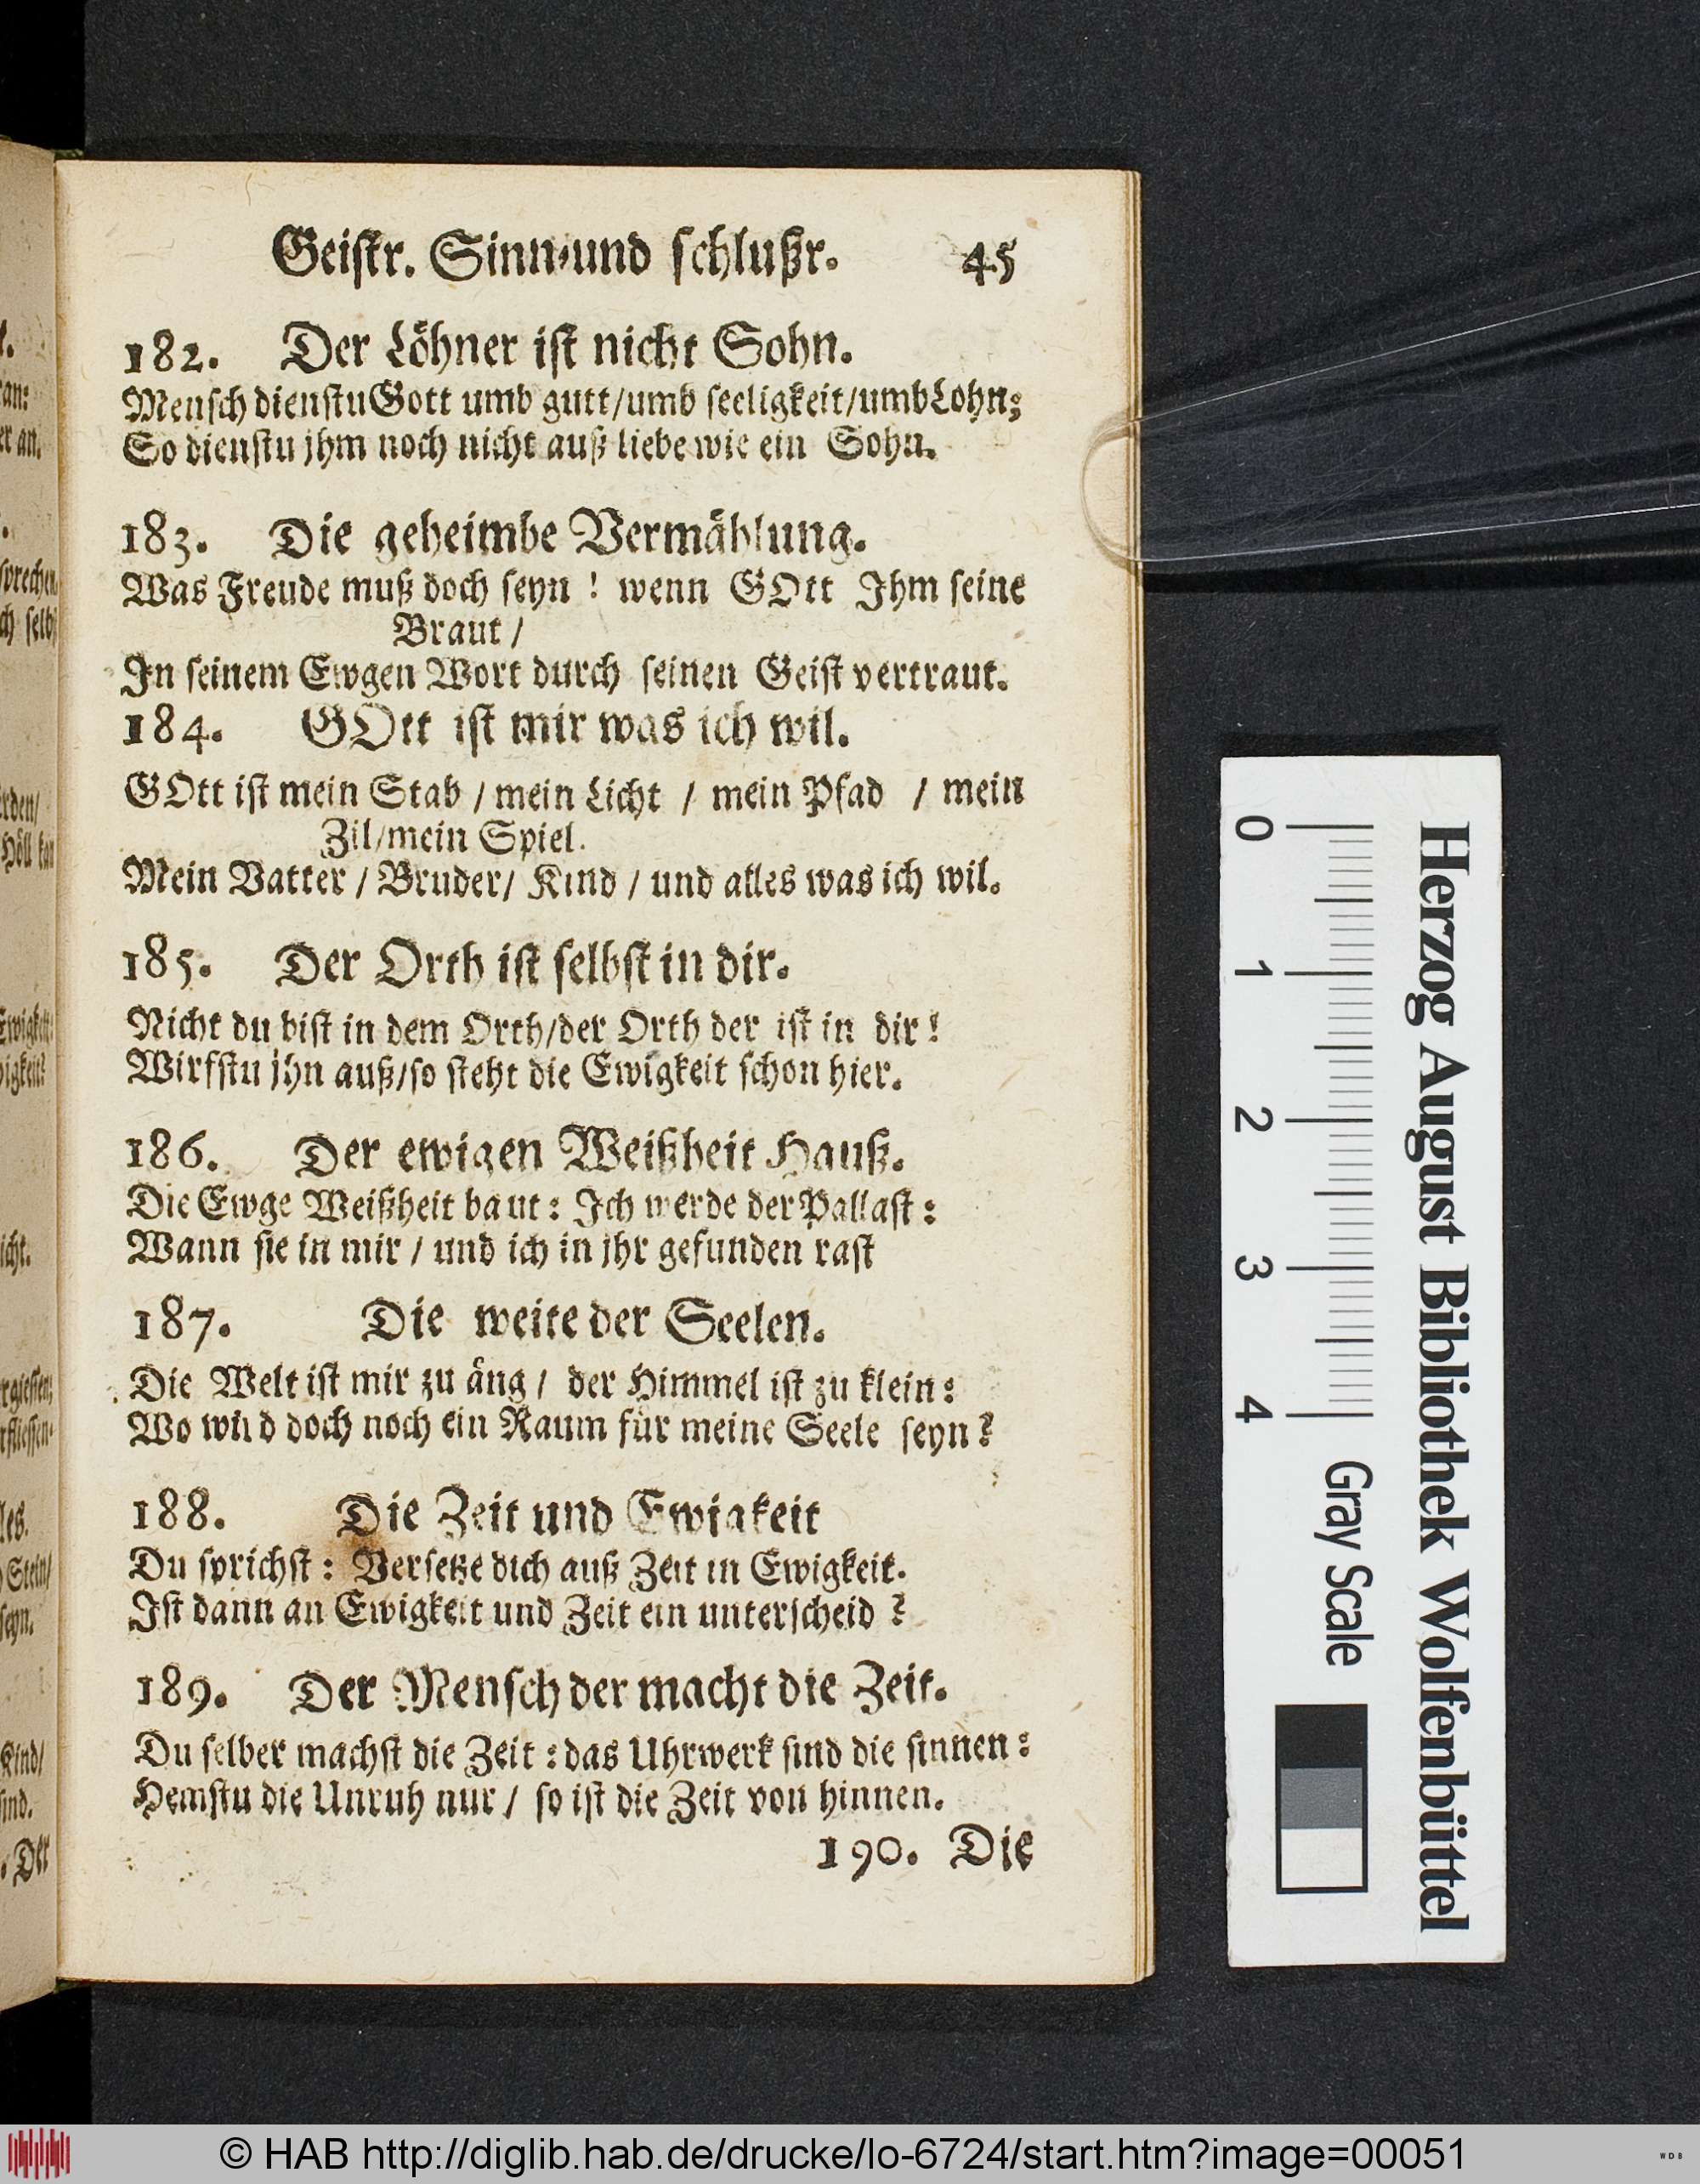 Geistr. Sinn-und schlußr. 45
182. Der Löhner ist nicht Sohn.
Mensch dienstu Gott umb gutt/umb seeligkeit/umb Lohn;
So dienstu jhm noch nicht auß liebe wie ein Sohn.
183. Die geheimbe Vermählung.
Was Freude muß doch seyn ! wenn GOtt Ihm seine
Braut /
In seinem Ewgen Wort durch seinen Geist vertraut.
184. GOtt ist mir was ich wil.
GOtt ist mein Stab / mein Licht / mein Pfad / mein
Zil/mein Spiel.
Mein Vatter / Bruder/ Kind / und alles was ich wil.
185. Der Orth ist selbst in dir.
Nicht du bist in dem Orth/der Orth der ist in dir!
Wirfstu jhn auß/so steht die Ewigkeit schon hier.
186. Der ewigen Weißheit Hauß.
Die Ewge Weißheit baut: Ich werde der Pallast:
Wann sie in mir / und ich in jhr gefunden rast
187. Die weite der Seelen.
Die Welt ist mir zu äng / der Himmel ist zu klein:
Wo wird doch noch ein Raum für meine Seele seyn?
188. Die Zeit und Ewigkeit
Du sprichst: Versetze dich auß Zeit in Ewigkeit.
Ist dann an Ewigkeit und Zeit ein unterscheid?
189. Der Mensch der macht die Zeit.
Du selber machst die Zeit: das Uhrwerk sind die sinnen:
Hemstu die Unruh nur / so ist die Zeit von hinnen.
190. Die
Herzog August Bibliothek Wolfenbüttel
0 1 2 3 4 Gray Scale
© HAB http://diglib.hab.de/drucke/lo-6724/start.htm?image=00051
WDB